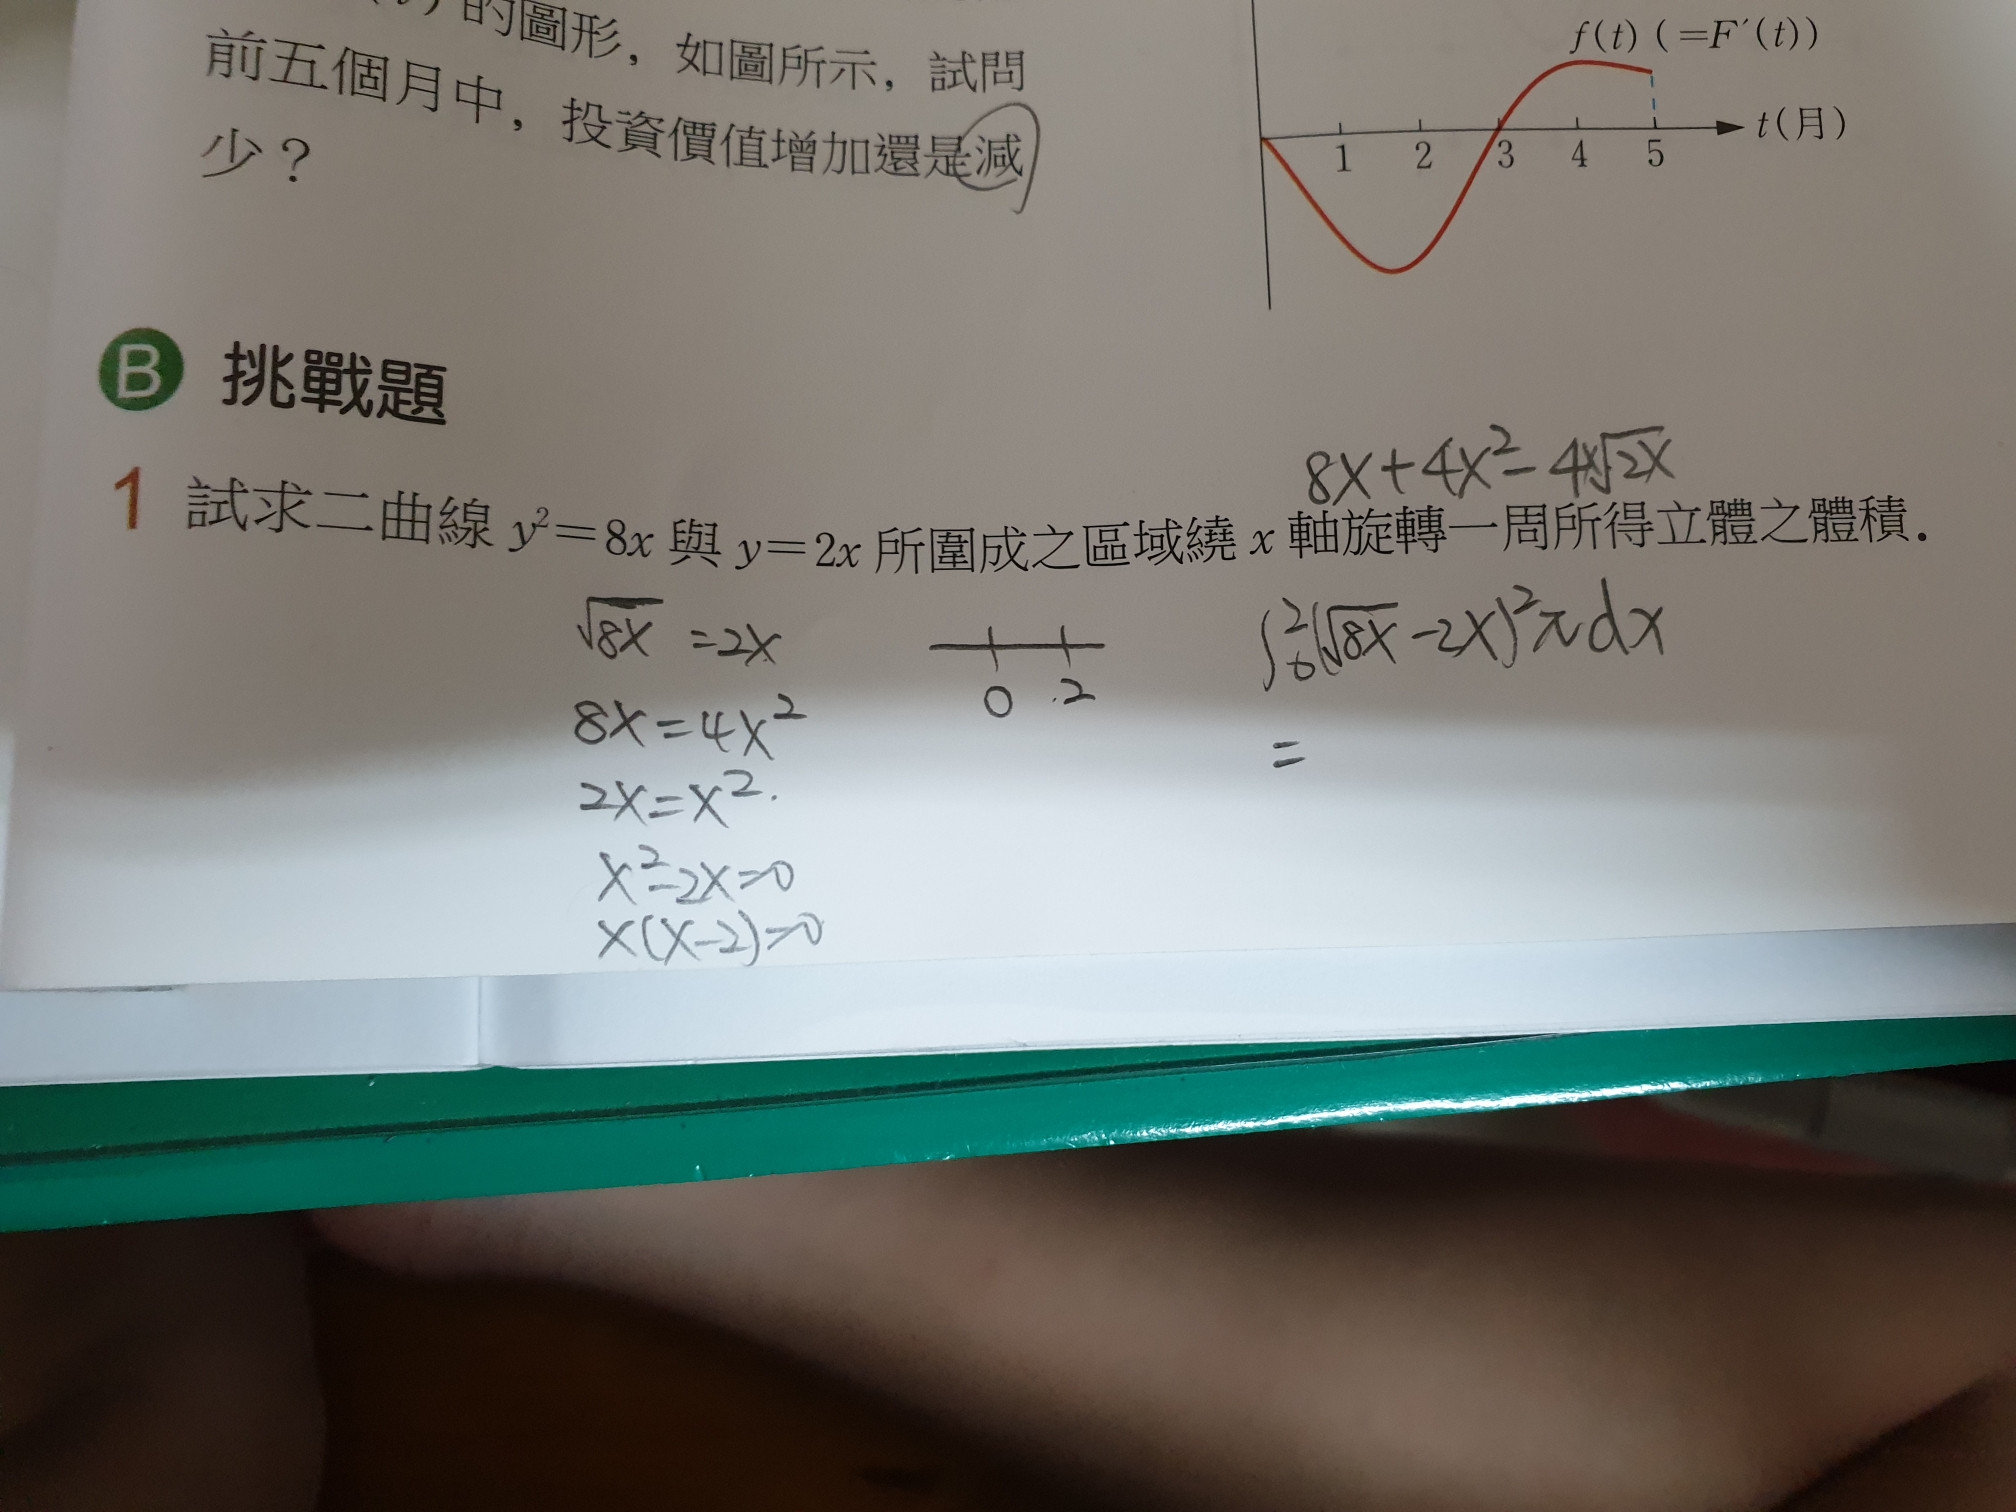 的圖形，如圖所示，試問
前五個月中，投資價值增加還是減
少？
f(t) (=F′(t))
t(月)
1 2 3 4 5
B 挑戰題
8x+4x²-4x√2x
1 試求二曲線 y²=8x 與 y=2x 所圍成之區域繞 x 軸旋轉一周所得立體之體積．
√8x =2x
8x=4x²
2x=x².
x²-2x=0
x(x-2)=0
0 2
∫₀²(√8x-2x)²π dx
=